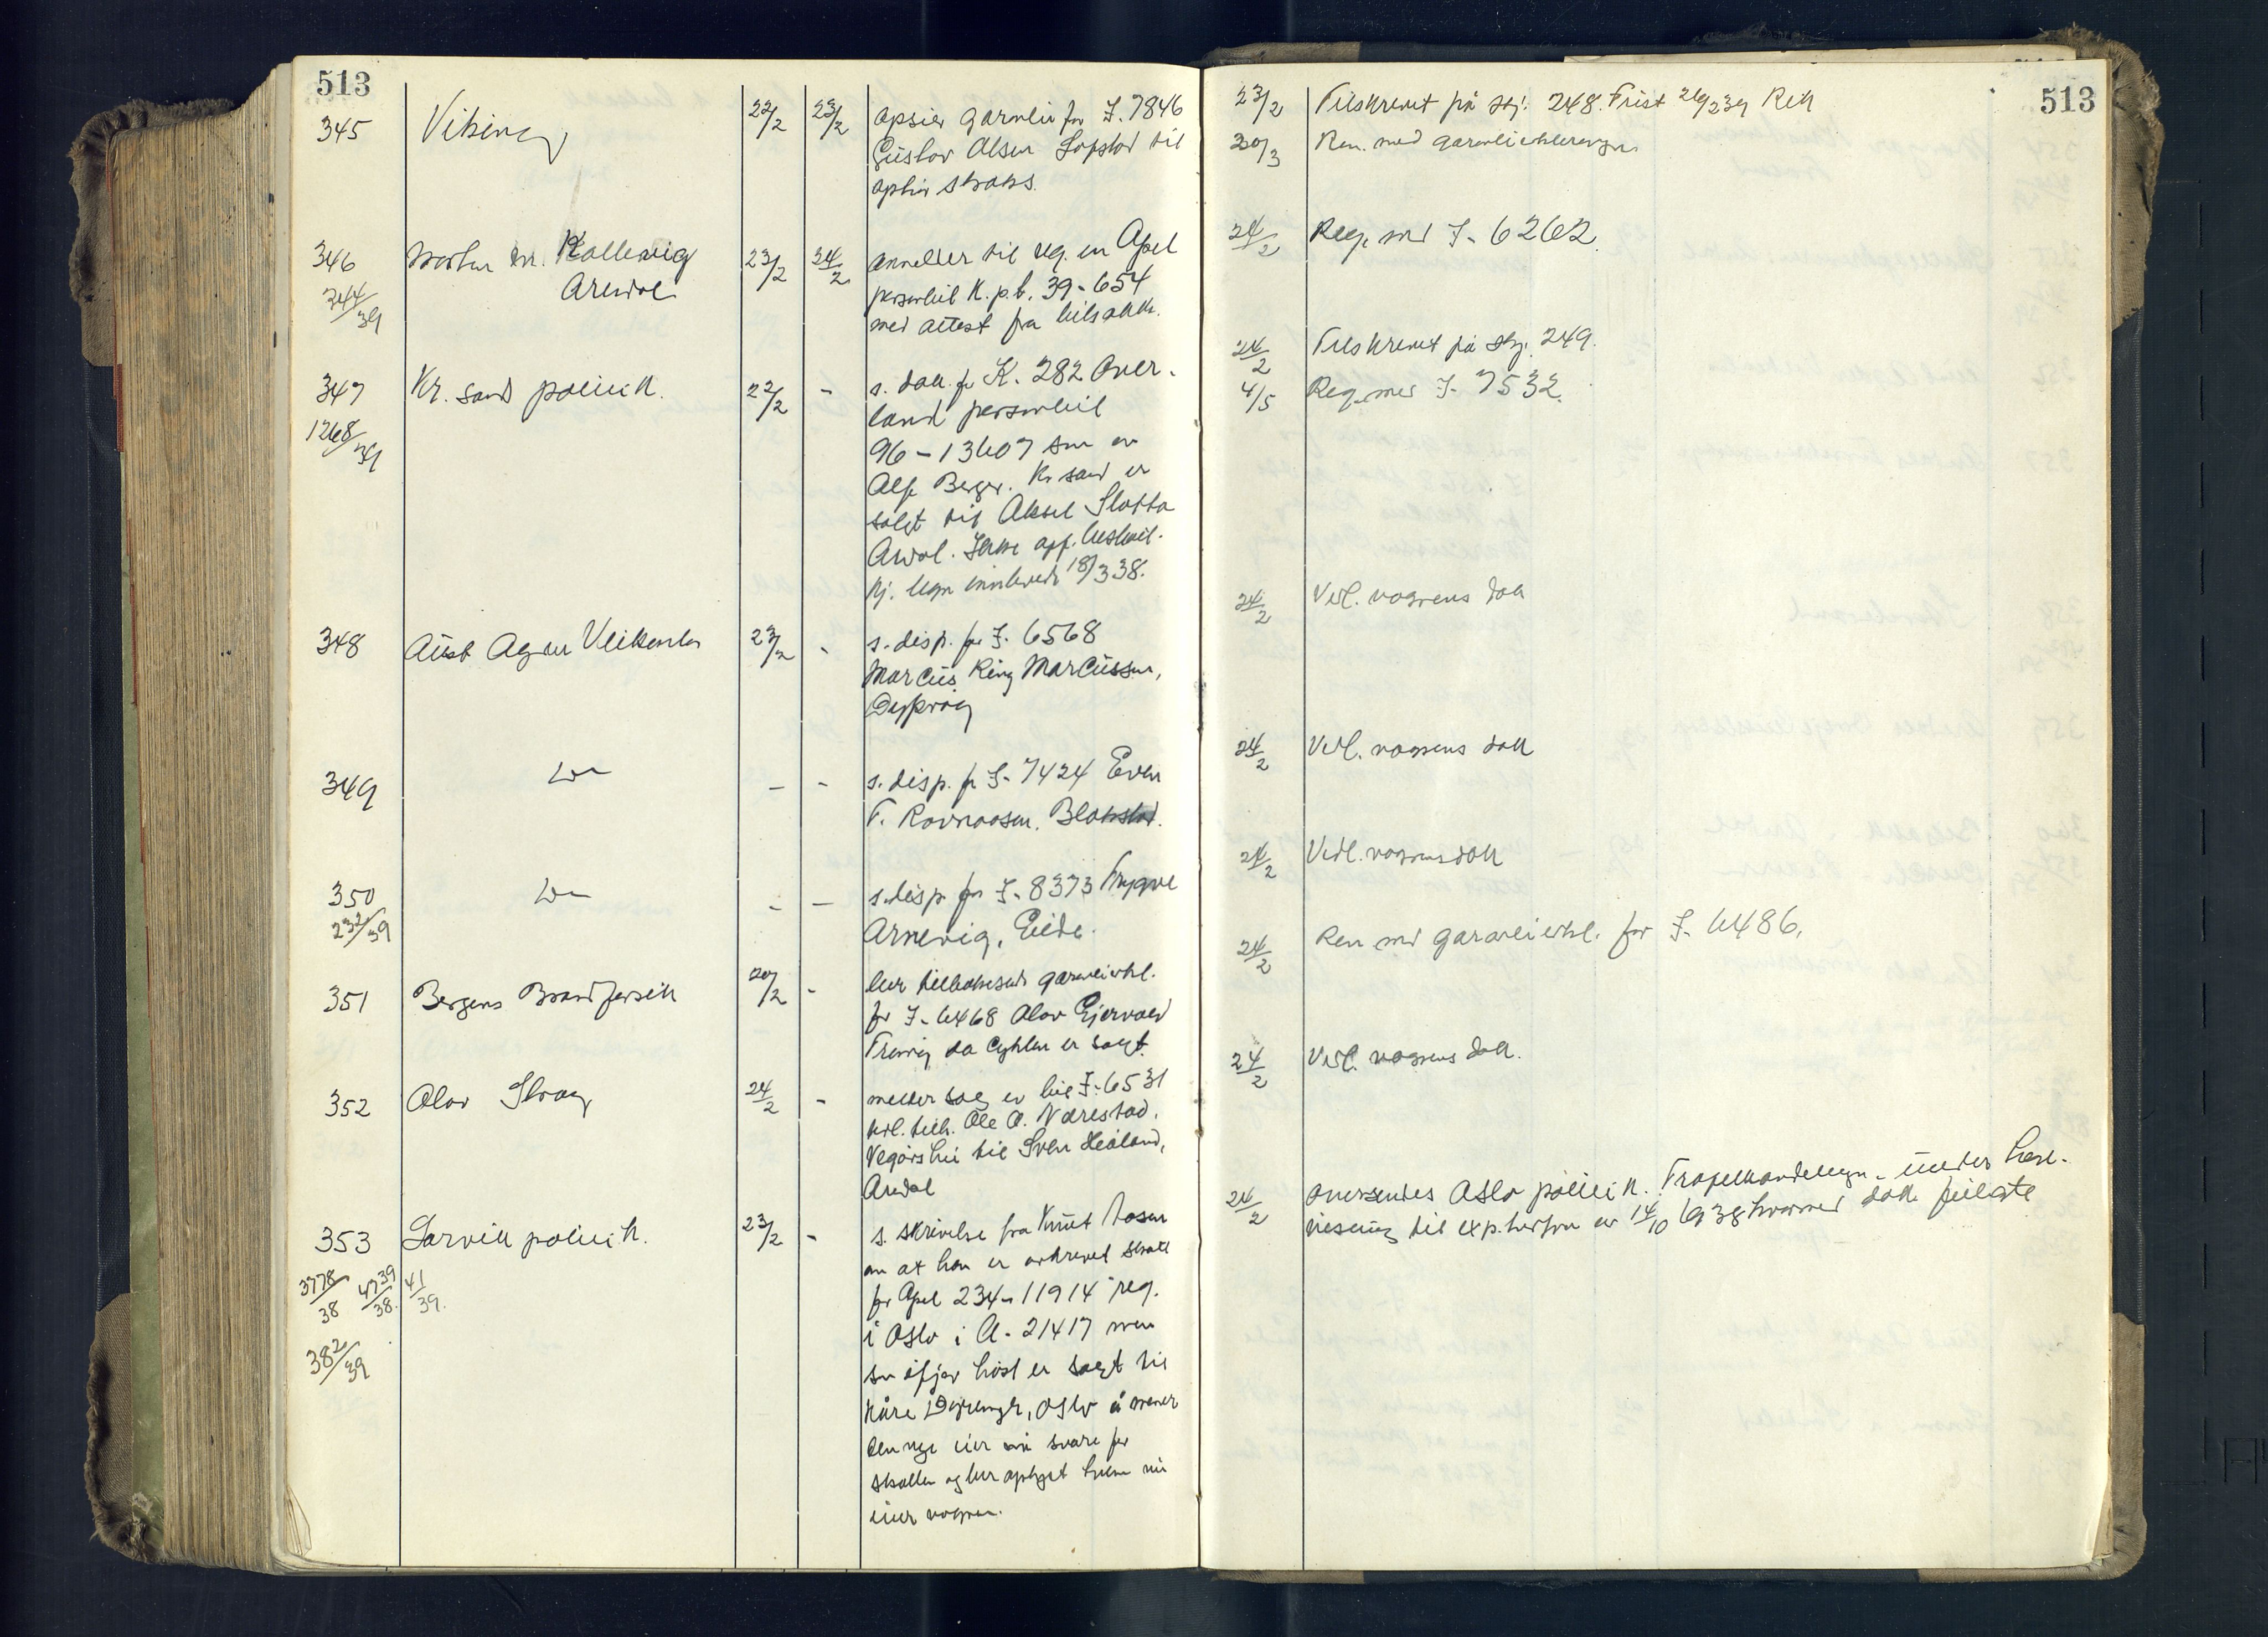 513
345 Viking 22/2 23/2 opsier garanti for I. 7846
Gustav Olsen Lofstad til
ophør straks.
346 Morten Kr. Kallevig 23/2 24/2 anmelder til reg. en Opel
244/39 Arendal personbil K.p.b. 39-654
med attest fra bilsakk.
347 Kr.sand politik. 22/2 - s. dok. for K. 282 Over-
1268/39 land personbil
96-13607 som av
Alf Berger. Kr sand er
solgt til Aksel Slotta
Ardal. Ikke opf. beskat.
kj. tegn innlevert 18/3 38.
348 Aust Agder Veikontor 23/2 - s. disp. for I. 6568
Marcus Ring Marcussen,
Dypvåg
349 Do - - s. disp. for I-7424 Even
T. Ravnaasen. Blakstad.
350 Do - - s. disp. for I-8373 Trygve
232/39 Arnevig, Eide.
351 Bergens Brandforsik 20/2 - ber tilbakesendt garantierkl.
for I-6468 Olav Gjervold
Tromøy da Cyklen er solgt.
352 Olav Skrag 24/2 - melder solg av bil I-6531
tilh. Ole O. Nærestad.
Vegårshei til Sven Heåland,
Ardal
353 Larvik politik. 23/2 - s. skrivelse fra Knut Aasen
3778/38 4739/38. 41/39. om at han er avkrevet skatt
for Opel 234-11914 reg.
382/39 i Oslo i A-21417 men
som ifjor høst er solgt til
Kåre, Oslo å mener
den nye eier må svare for
skatten og ber oplyst hvem nu
eier vognen.
513
23/2 Tilskrevet på skj. 248. Frist 26/2 39 RekK
30/3 Ren. med garantierklæringen.
24/2 Reg. med I-6262.
24/2 Tilskrevet på skj. 249.
4/5 Reg. med I-7532.
24/2 Vedl. vognens dok
24/2 Vedl. vognens dok
24/2 Vedl. vognens dok
24/2 Ren med garantierkl. for I-6486.
24/2 Vedl. vognens dok.
24/2 oversendes Oslo politik. Trafikkavdelingen under hen-
visning til exp. herfra av 14/10 1938 hvormed dok fulgte